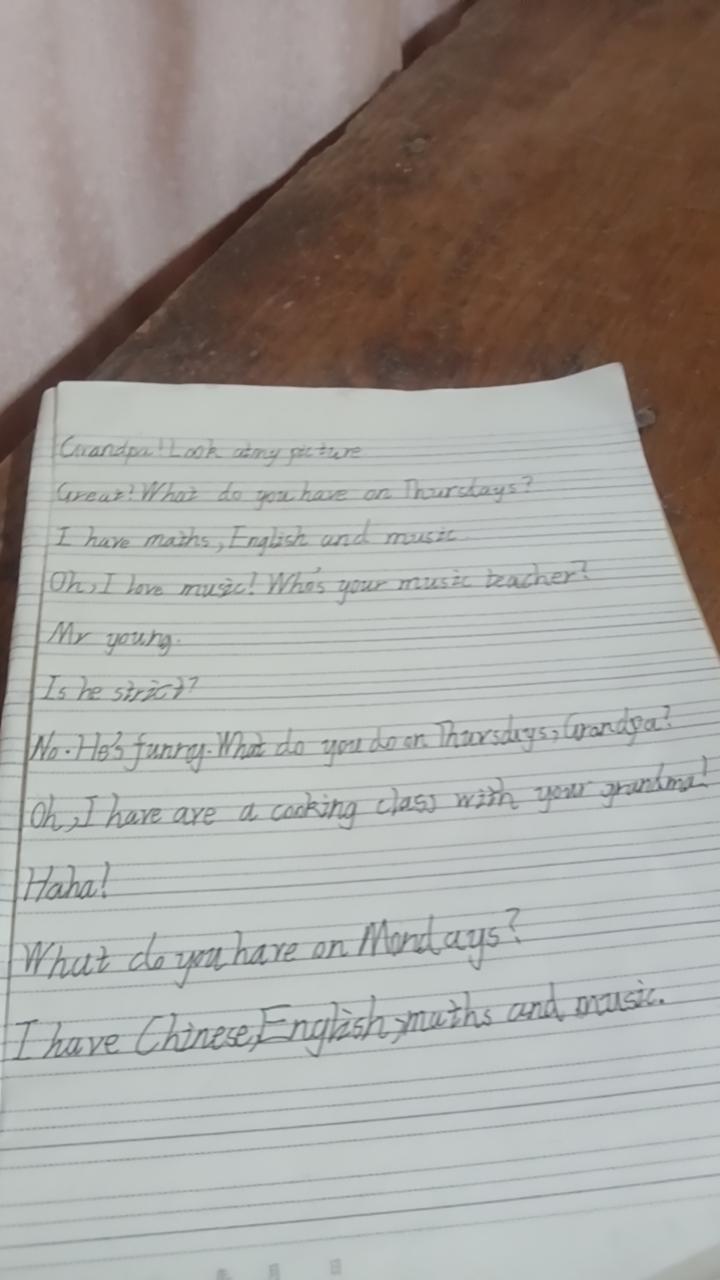 Grandpa! Look at my picture
Great! What do you have on Thursdays?
I have maths, English and music.
Oh, I love music! Who's your music teacher?
Mr young.
Is he strict?
No. He's funny. What do you do on Thursdays, Grandpa?
Oh, I have are a cooking class with your grandma!
Haha!
What do you have on Mondays?
I have Chinese, English, maths and music.
月 日